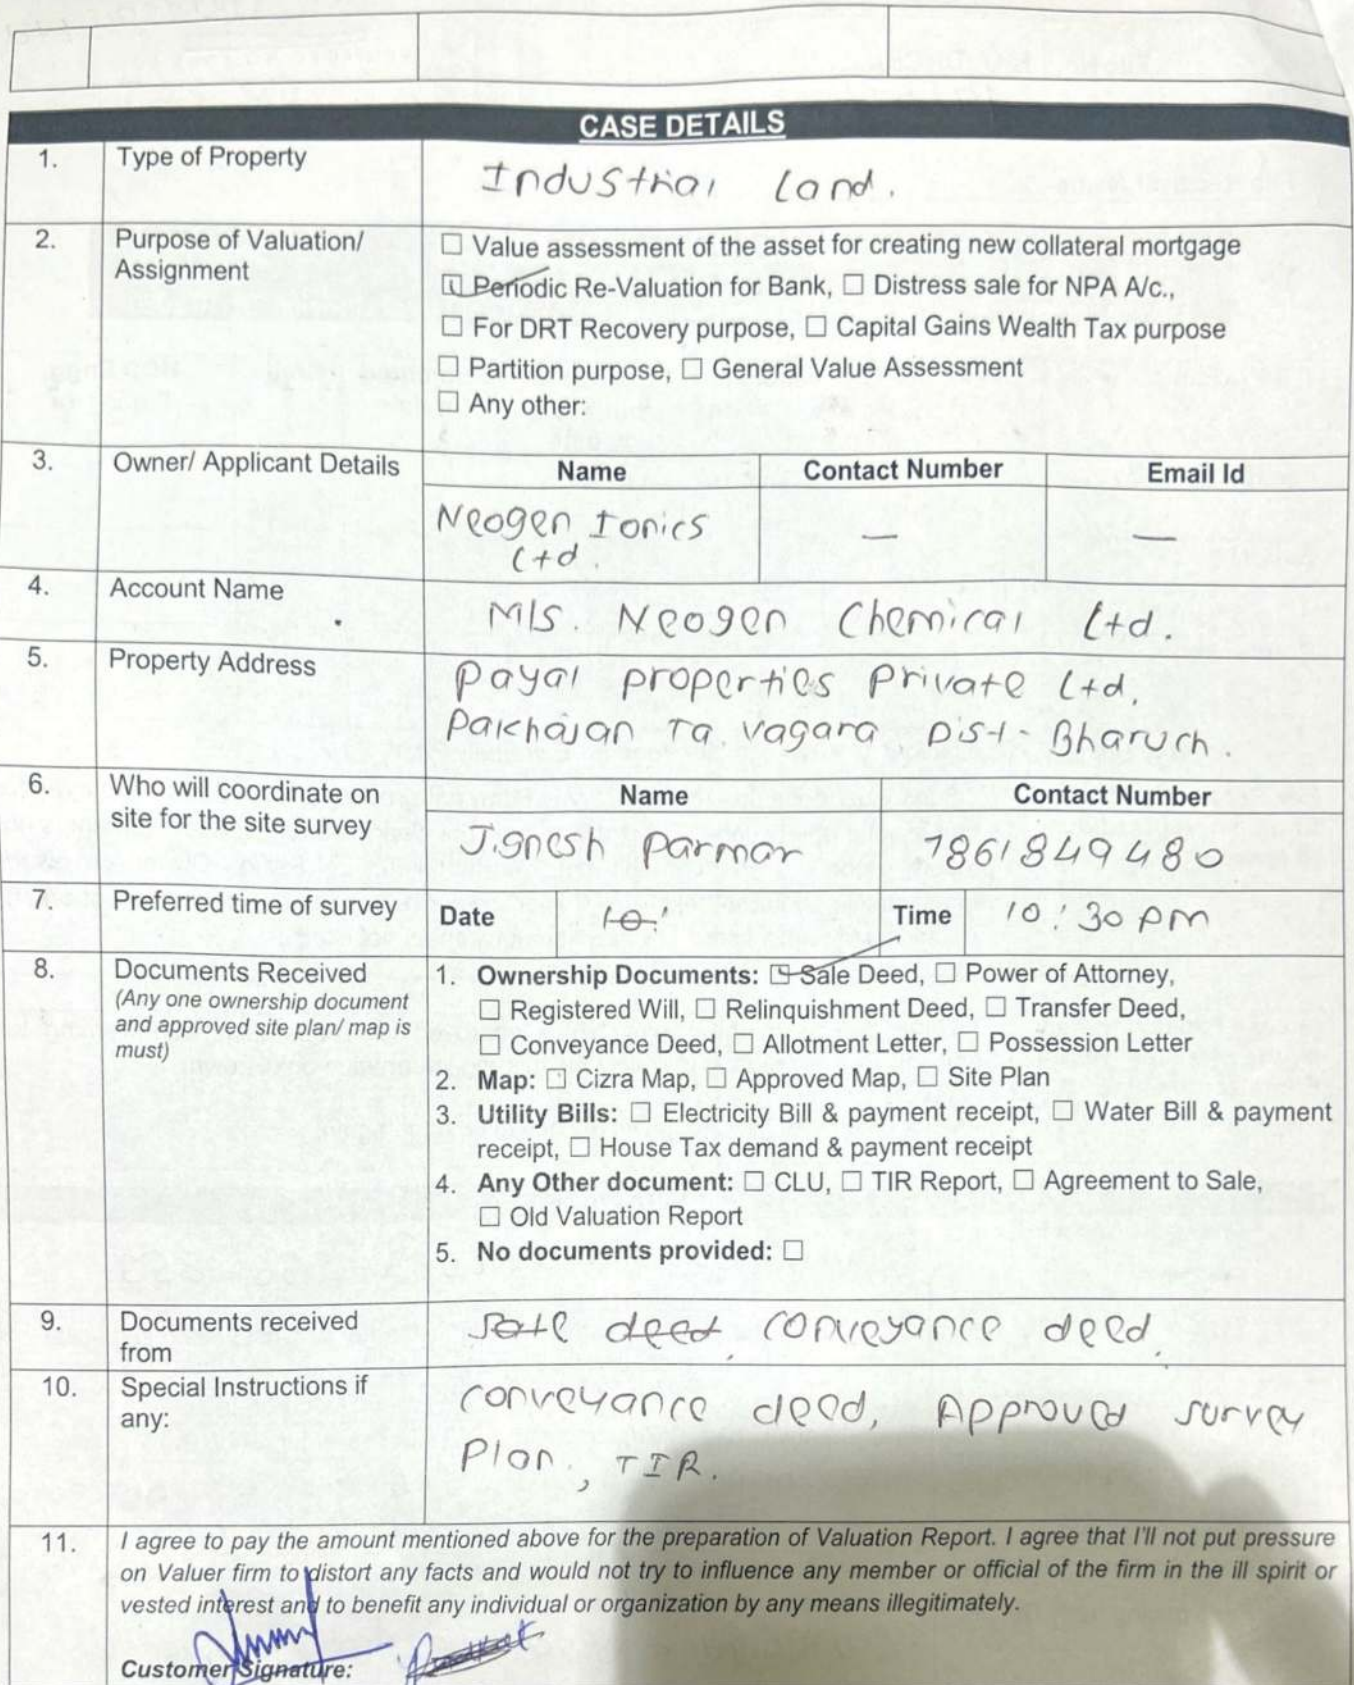 CASE DETAILS
1. Type of Property Industrial Land.
2. Purpose of Valuation/ Assignment
☐ Value assessment of the asset for creating new collateral mortgage
☑ Periodic Re-Valuation for Bank, ☐ Distress sale for NPA A/c.,
☐ For DRT Recovery purpose, ☐ Capital Gains Wealth Tax purpose
☐ Partition purpose, ☐ General Value Assessment
☐ Any other:
3. Owner/ Applicant Details Name Contact Number Email Id
Neogen Ionics — —
Ltd.
4. Account Name M/S. Neogen Chemical Ltd.
5. Property Address Payal properties Private Ltd,
Pakhajan Ta. vagara Dist- Bharuch.
6. Who will coordinate on Name Contact Number
site for the site survey Jignesh Parmar 7861849480
7. Preferred time of survey Date 10! Time 10:30 pm
8. Documents Received
(Any one ownership document
and approved site plan/ map is
must)
1. Ownership Documents: ☑ Sale Deed, ☐ Power of Attorney,
☐ Registered Will, ☐ Relinquishment Deed, ☐ Transfer Deed,
☐ Conveyance Deed, ☐ Allotment Letter, ☐ Possession Letter
2. Map: ☐ Cizra Map, ☐ Approved Map, ☐ Site Plan
3. Utility Bills: ☐ Electricity Bill & payment receipt, ☐ Water Bill & payment
receipt, ☐ House Tax demand & payment receipt
4. Any Other document: ☐ CLU, ☐ TIR Report, ☐ Agreement to Sale,
☐ Old Valuation Report
5. No documents provided: ☐
9. Documents received from Sale deed, conveyance deed.
10. Special Instructions if any: conveyance deed, Approved survey
Plan., TIR.
11. I agree to pay the amount mentioned above for the preparation of Valuation Report. I agree that I'll not put pressure
on Valuer firm to distort any facts and would not try to influence any member or official of the firm in the ill spirit or
vested interest and to benefit any individual or organization by any means illegitimately.
Customer Signature: